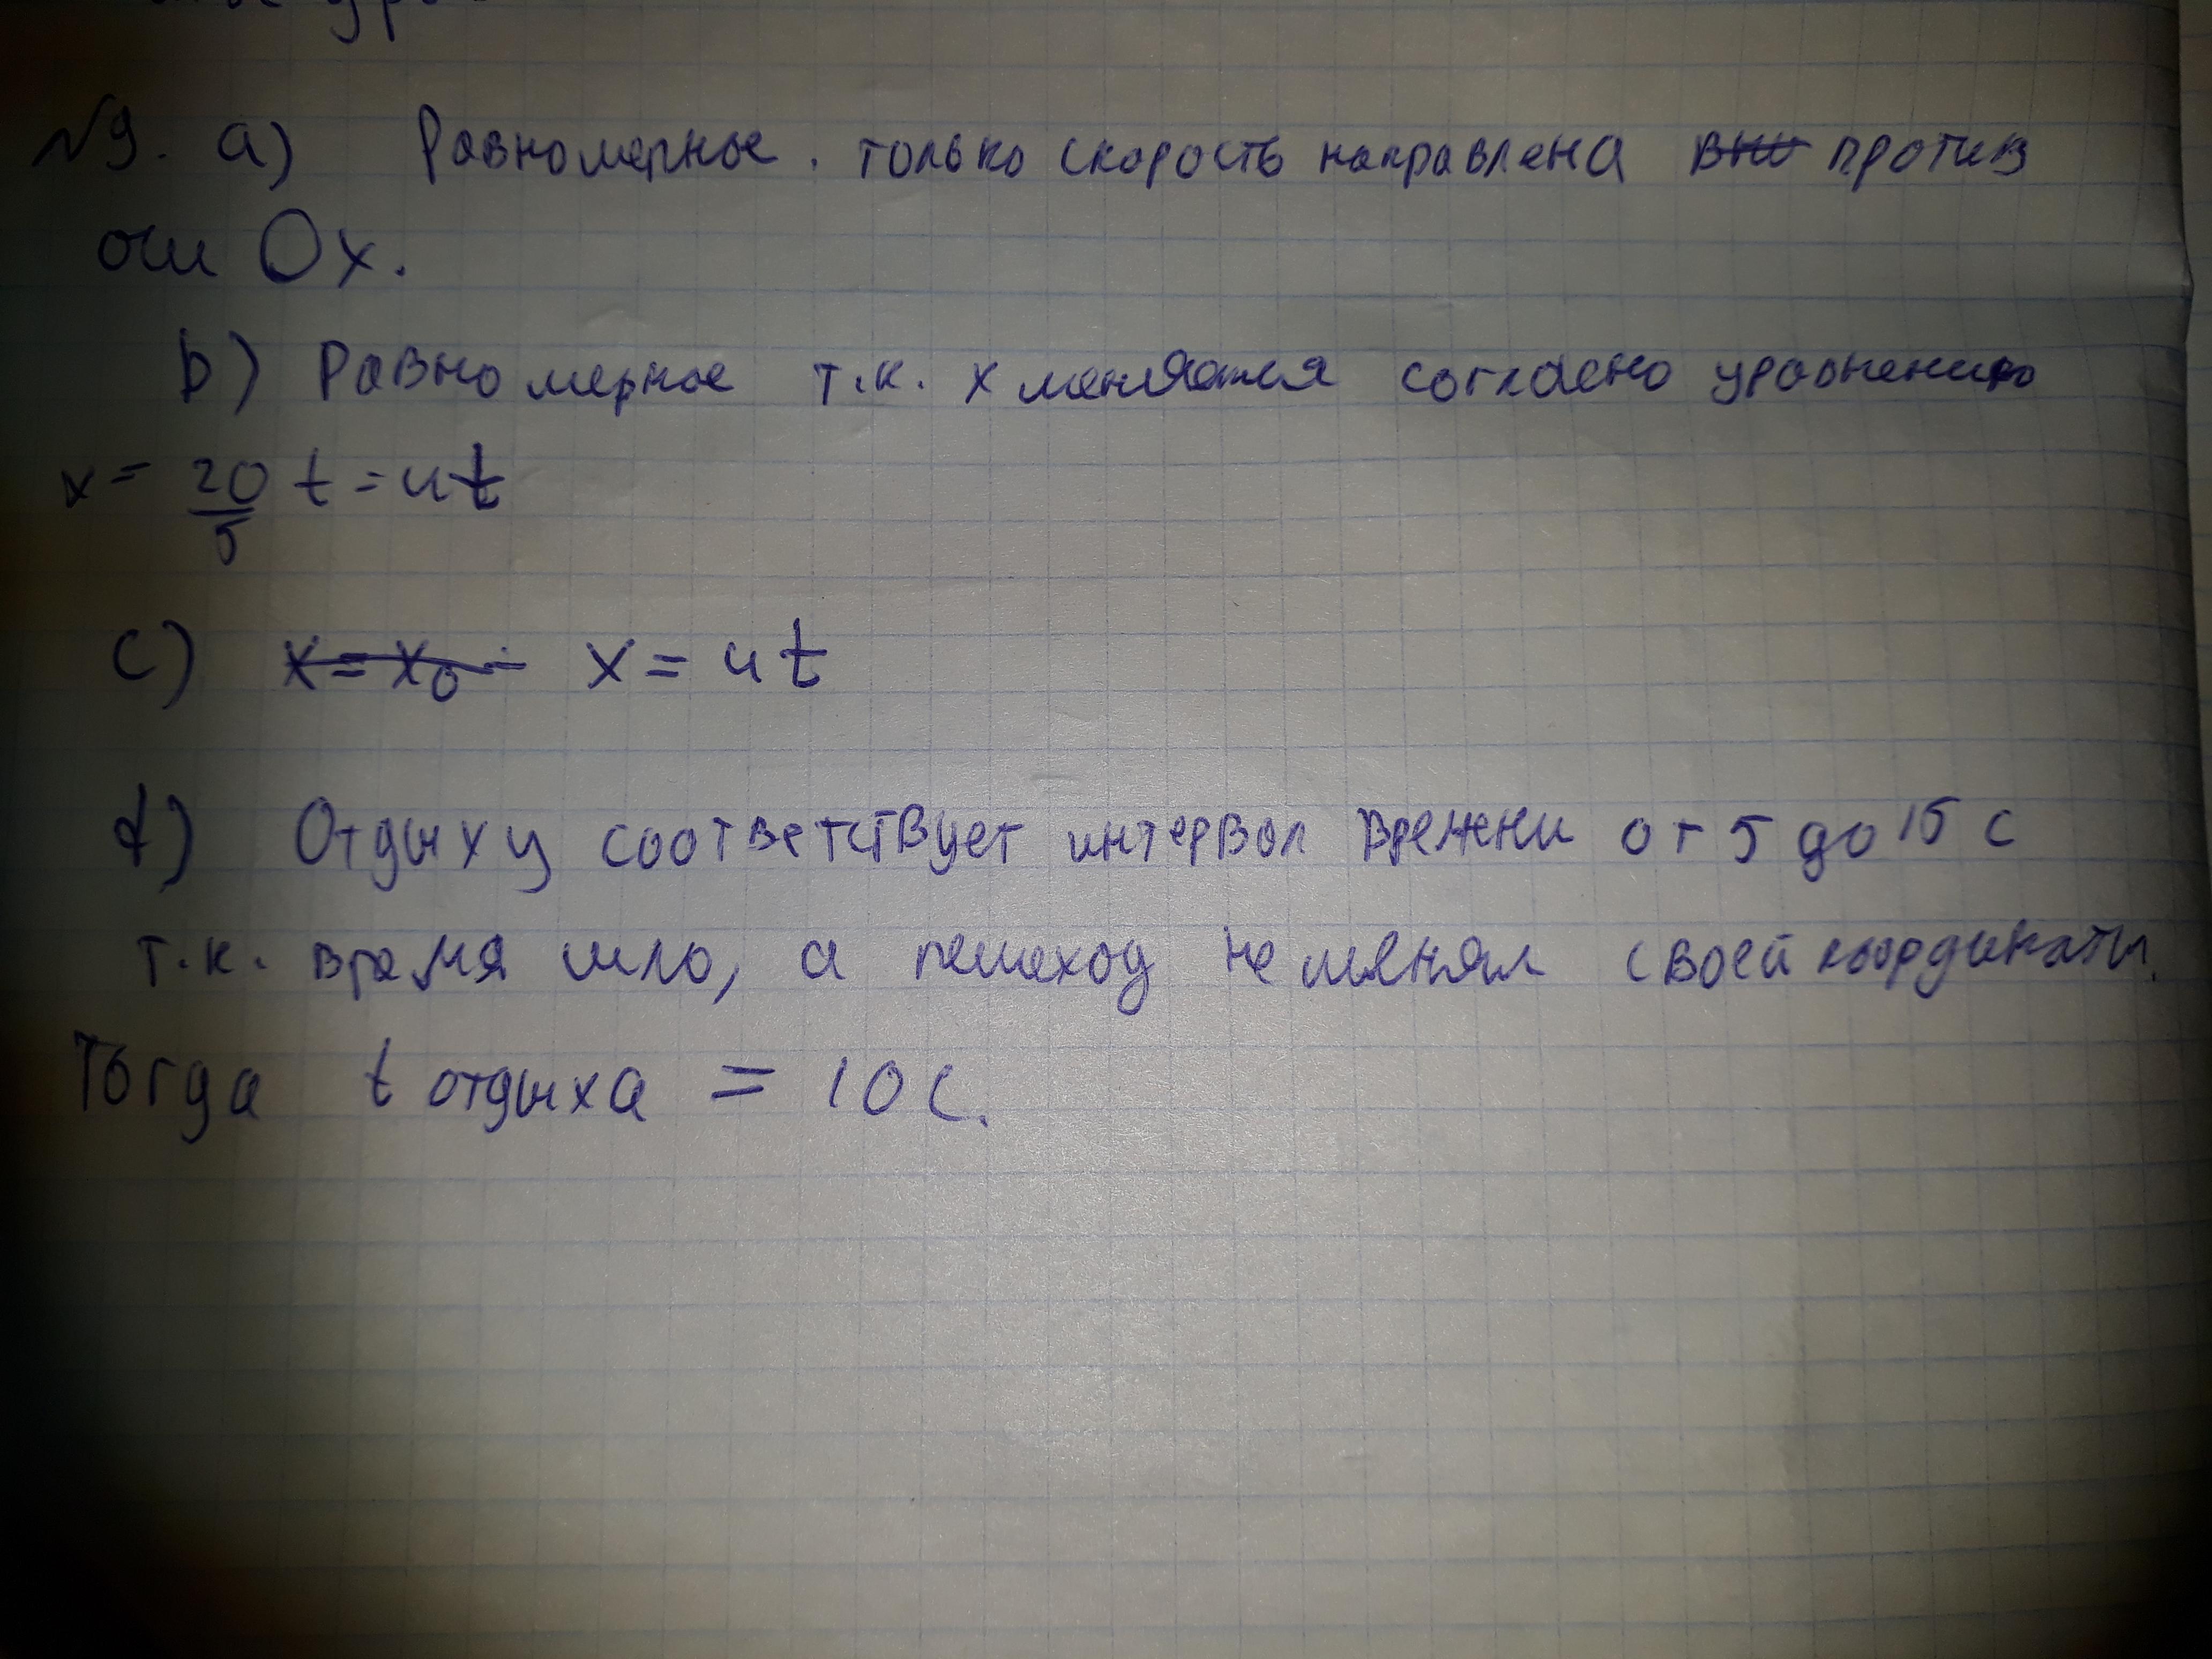 №9. a) Равномерное. только скорость направлена вни против
оси Ox.
b) Равномерное т.к. x меняется согласно уравнению
x = 20/5 t = 4t
c) x = x₀ - x = 4t
d) Отдыху соответствует интервал времени от 5 до 15 с
т.к. время шло, а пешеход не менял своей координаты.
Тогда t отдыха = 10 с.